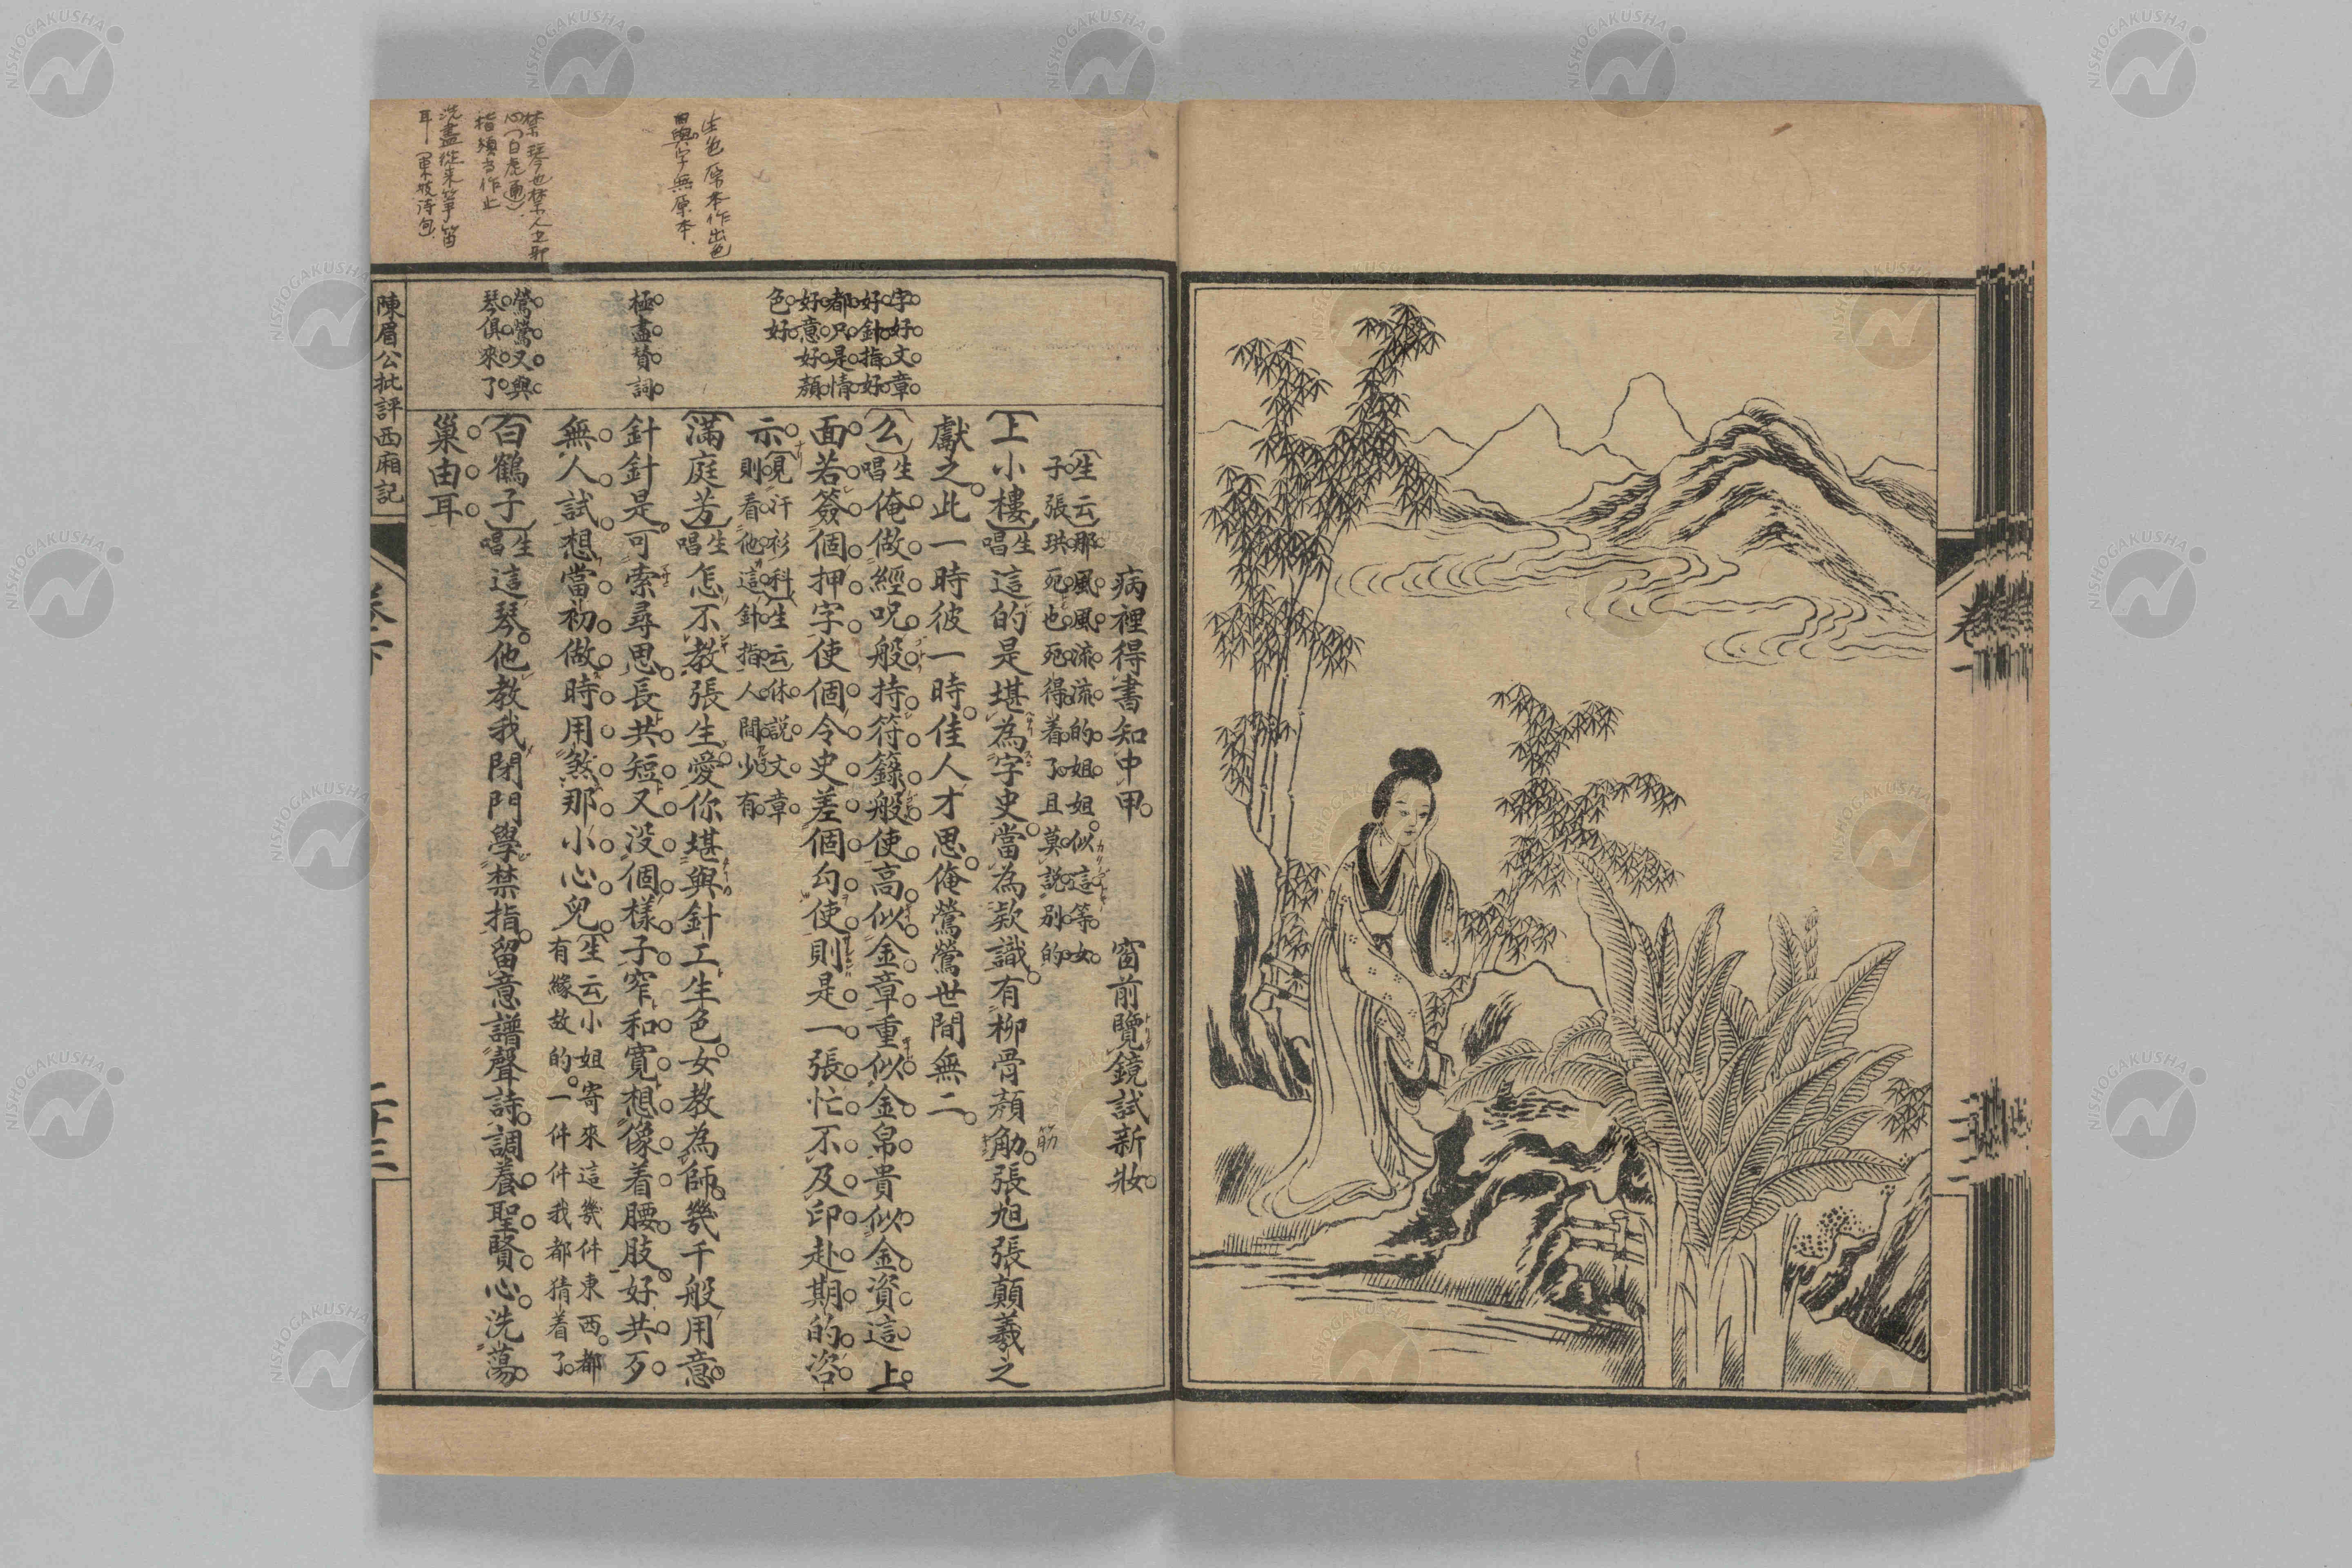 卷一
病裡得書知中甲。窗前覽鏡試新妝。
〔生云〕那風風流流的姐姐。似這等女
子張珙死也死得着了且莫說別的
〔上小樓〕生唱這的是堪為字史。當為款識。有柳骨顏觔。張旭張顛羲之
獻之。此一時彼一時。佳人才思。俺鶯鶯世間無二。
〔么〕生唱俺做經呪般持符籙般使高似金章重似金帛貴似金資這上
面若簽個押字使個令史差個勾使則是一張忙不及印赴期的咨
示。〔見汗衫科〕〔生云〕休說文章
則看他這針指人間少有
〔滿庭芳〕生唱怎不教張生愛你堪與針工生色。女教為師。幾千般用意
針針是。可索尋思。長共短又没個樣子窄和寬想像着腰肢。好共歹
無人試想當初做時用煞那小心兒。〔生云〕小姐寄來這幾件東西。都
有緣故的。一件件我都猜着了。
〔白鶴子〕生唱這琴。他教我閉門學禁指。留意譜聲詩。調養聖賢心。洗蕩
巢由耳
字好文章
好針指好
都只是情
好意好顏
色好
極盡贊詞
鶯鶯又與
琴俱來了
陳眉公批評西廂記
二十三
筋
生色 原本作出色
與字無原本、
禁 琴也禁人之邪
心（白虎通）、
指須当作止
洗盡從来箏笛
耳（東坡詩句）
NISHOGAKUSHA